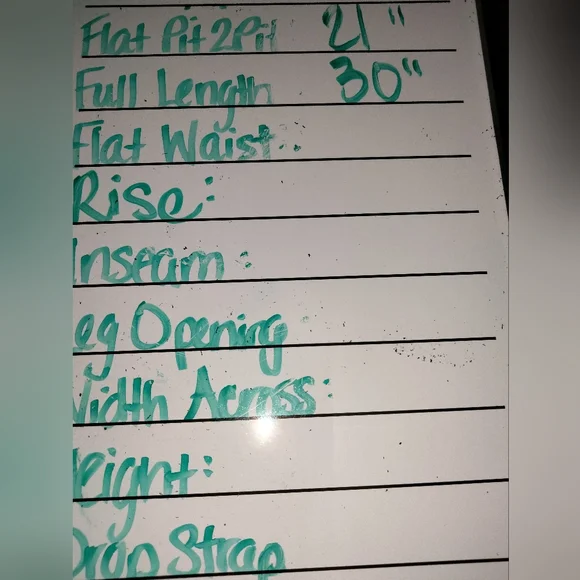 Flat Pit2Pit 21"
Full Length 30"
Flat Waist:
Rise:
Inseam:
eg Opening
Width Across:
eight:
Drop Strap